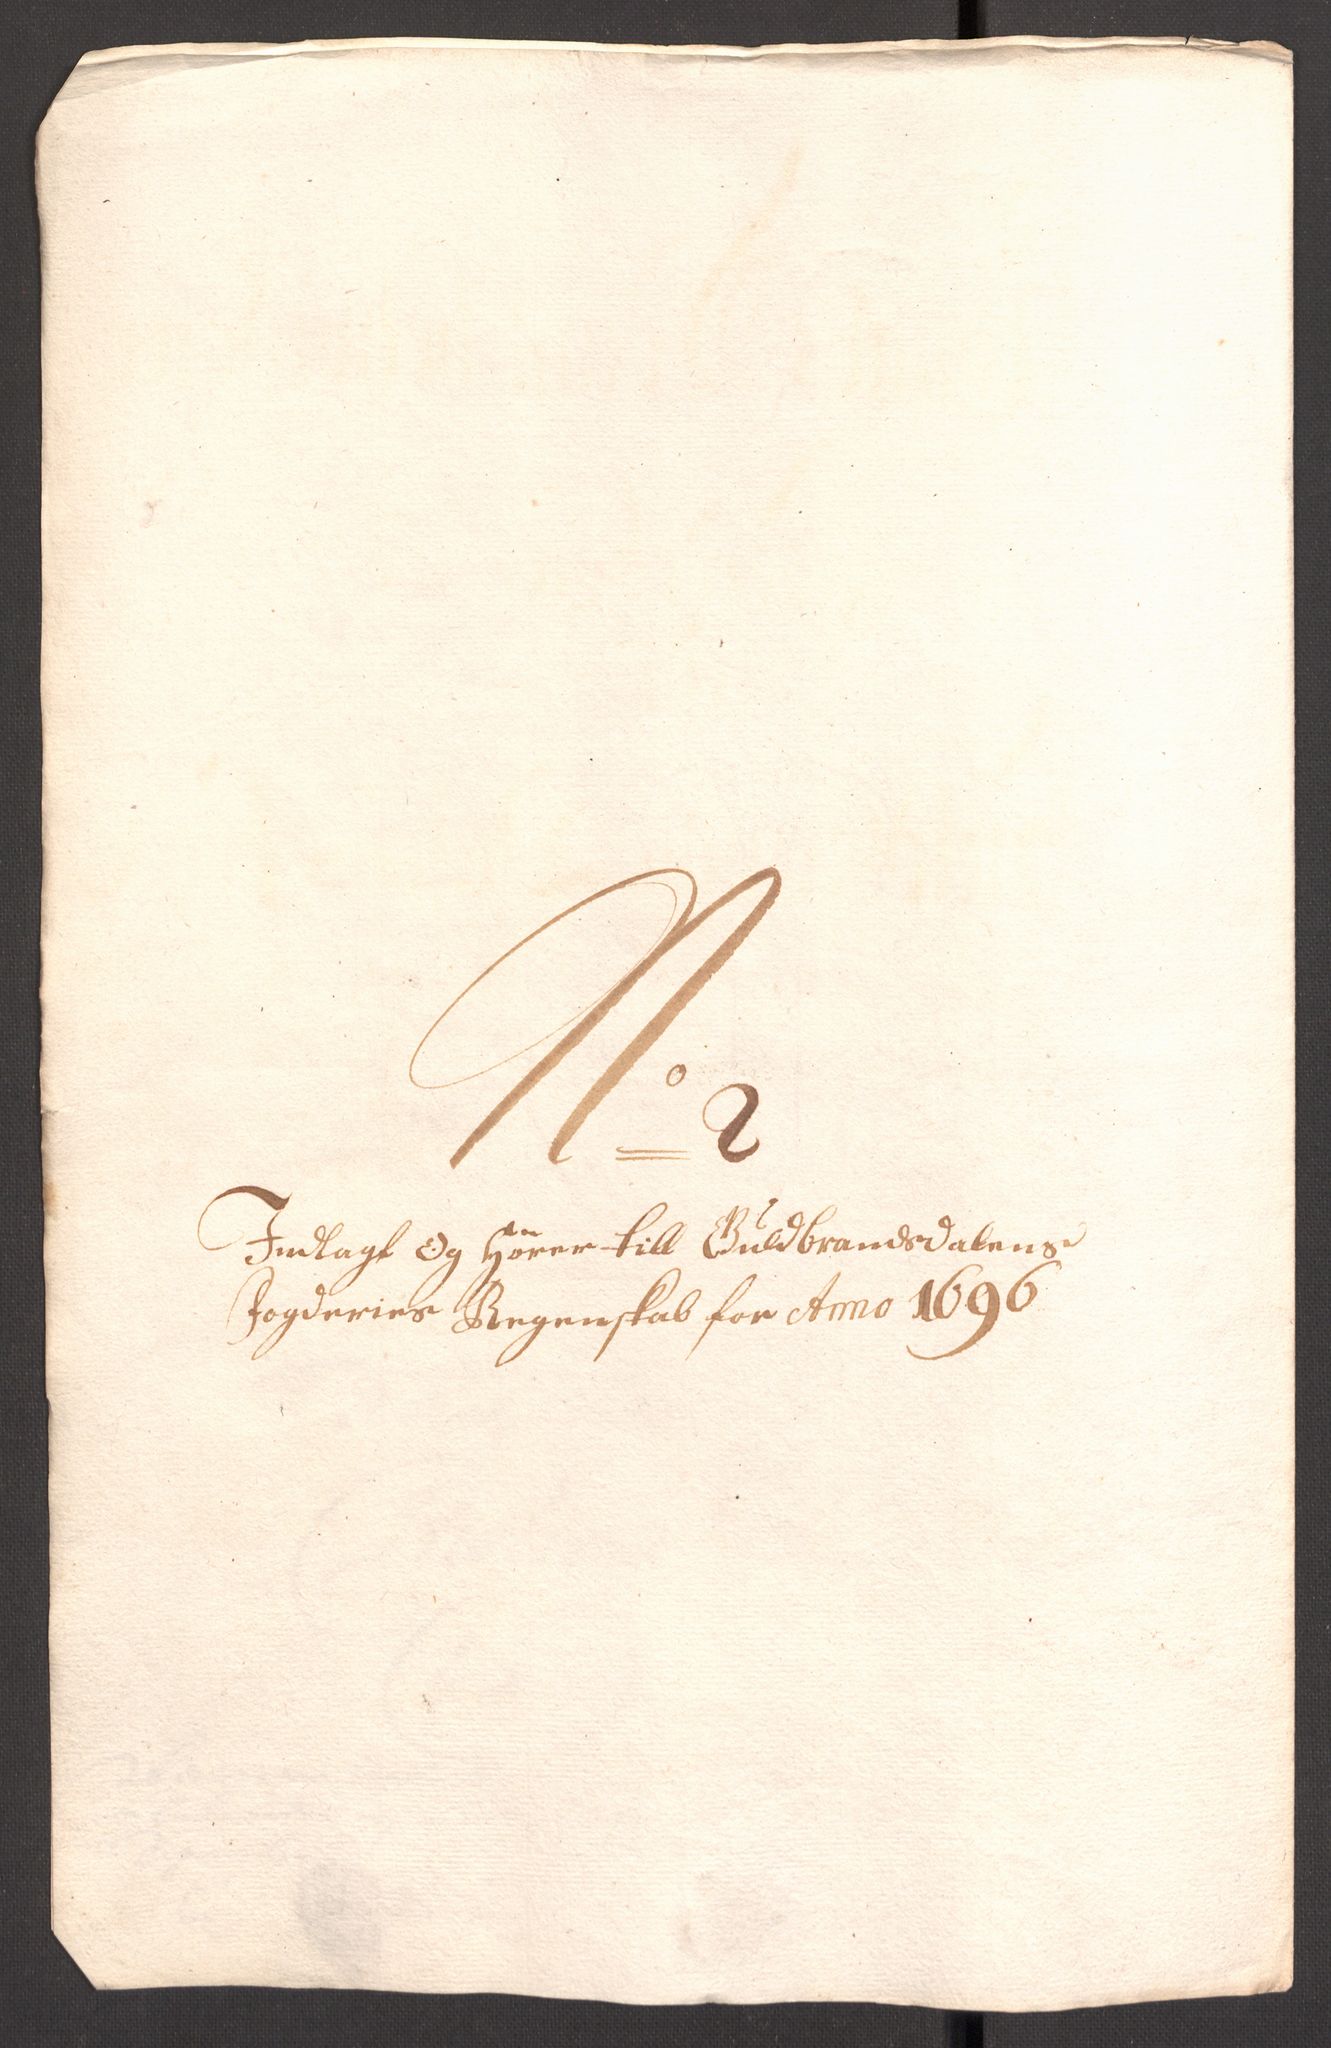 No 2
Indlagt Og Hörer till Guldbrandsdalens
Fogderies Regenskab for Anno 1696